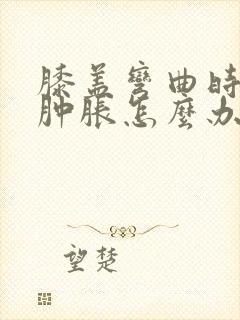 膝盖弯曲时
肿胀怎么办
望楚